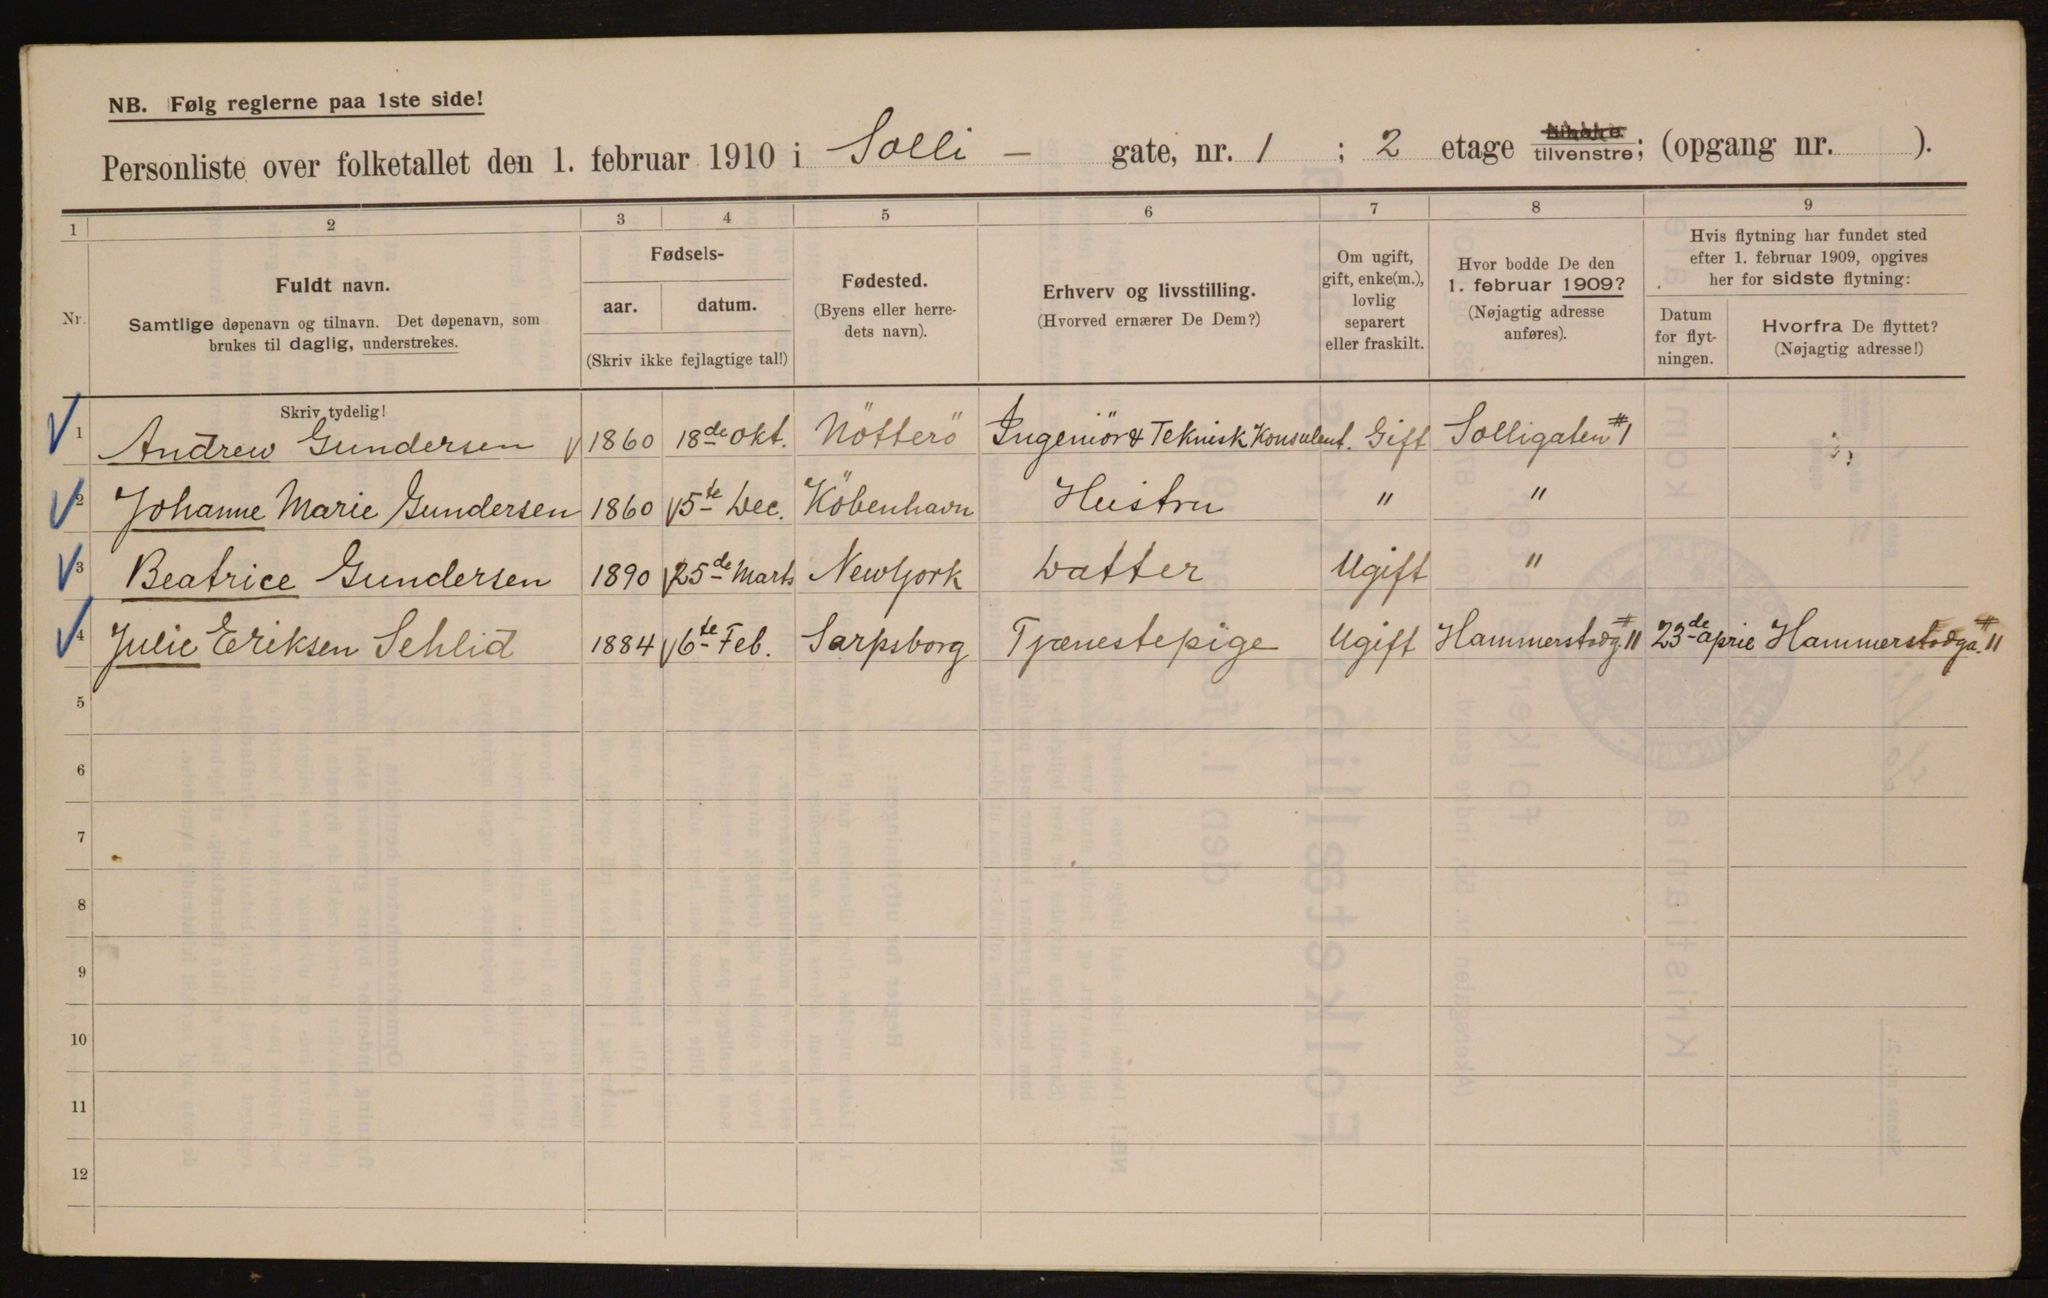 NB. Følg reglerne paa 1ste side!
Personliste over folketallet den 1. februar 1910 i Solli - gate, nr. 1 ; 2 etage tilvenstre; (opgang nr. ).
1 2 3 4 5 6 7 8 9
Nr.
Fuldt navn.
Samtlige døpenavn og tilnavn. Det døpenavn, som
brukes til daglig, understrekes.
Fødsels-
aar. datum.
(Skriv ikke fejlagtige tal!)
Fødested.
(Byens eller herre-
dets navn).
Erhverv og livsstilling.
(Hvorved ernærer De Dem?)
Om ugift,
gift, enke(m.),
lovlig
separert
eller fraskilt.
Hvor bodde De den
1. februar 1909?
(Nøjagtig adresse
anføres).
Hvis flytning har fundet sted
efter 1. februar 1909, opgives
her for sidste flytning:
Datum
for flyt-
ningen.
Hvorfra De flyttet?
(Nøjagtig adresse!)
Skriv tydelig!
1 Andrew Gundersen 1860 18de Okt. Nötterö Ingeniör & Teknisk Konsulent. Gift Solligaten # 1
2 Johanne Marie Gundersen 1860 5te Dec. Köbenhavn Hustru " "
3 Beatrice Gundersen 1890 25de Marts New York Datter Ugift "
4 Julie Eriksen Sehlid 1884 6te Feb. Sarpsborg Tjænestepige Ugift Hammerstadg. # 11 23de April Hammerstadga. # 11
5
6
7
8
9
10
11
12